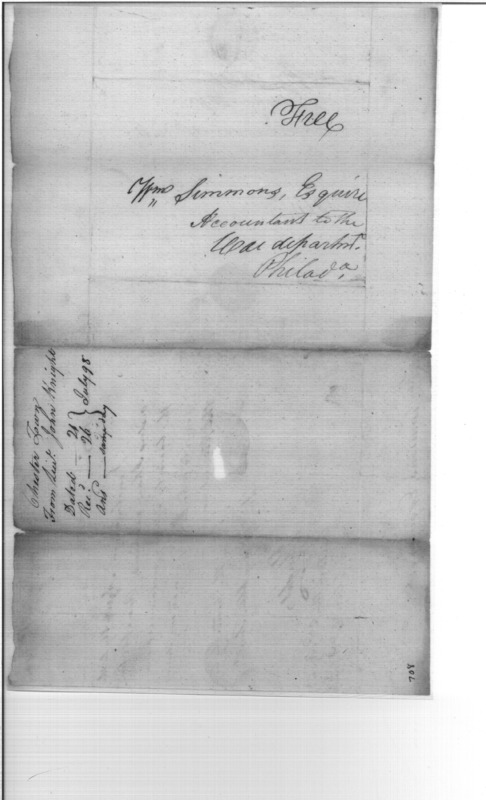 Free
Wm Simmons, Esquire
Accountant to the
War departmt.
Philada.
Chester Town
From Lieut. John Knight
Dated - 21
Rec'd — 26 } July 98
Ans'd — same day
708